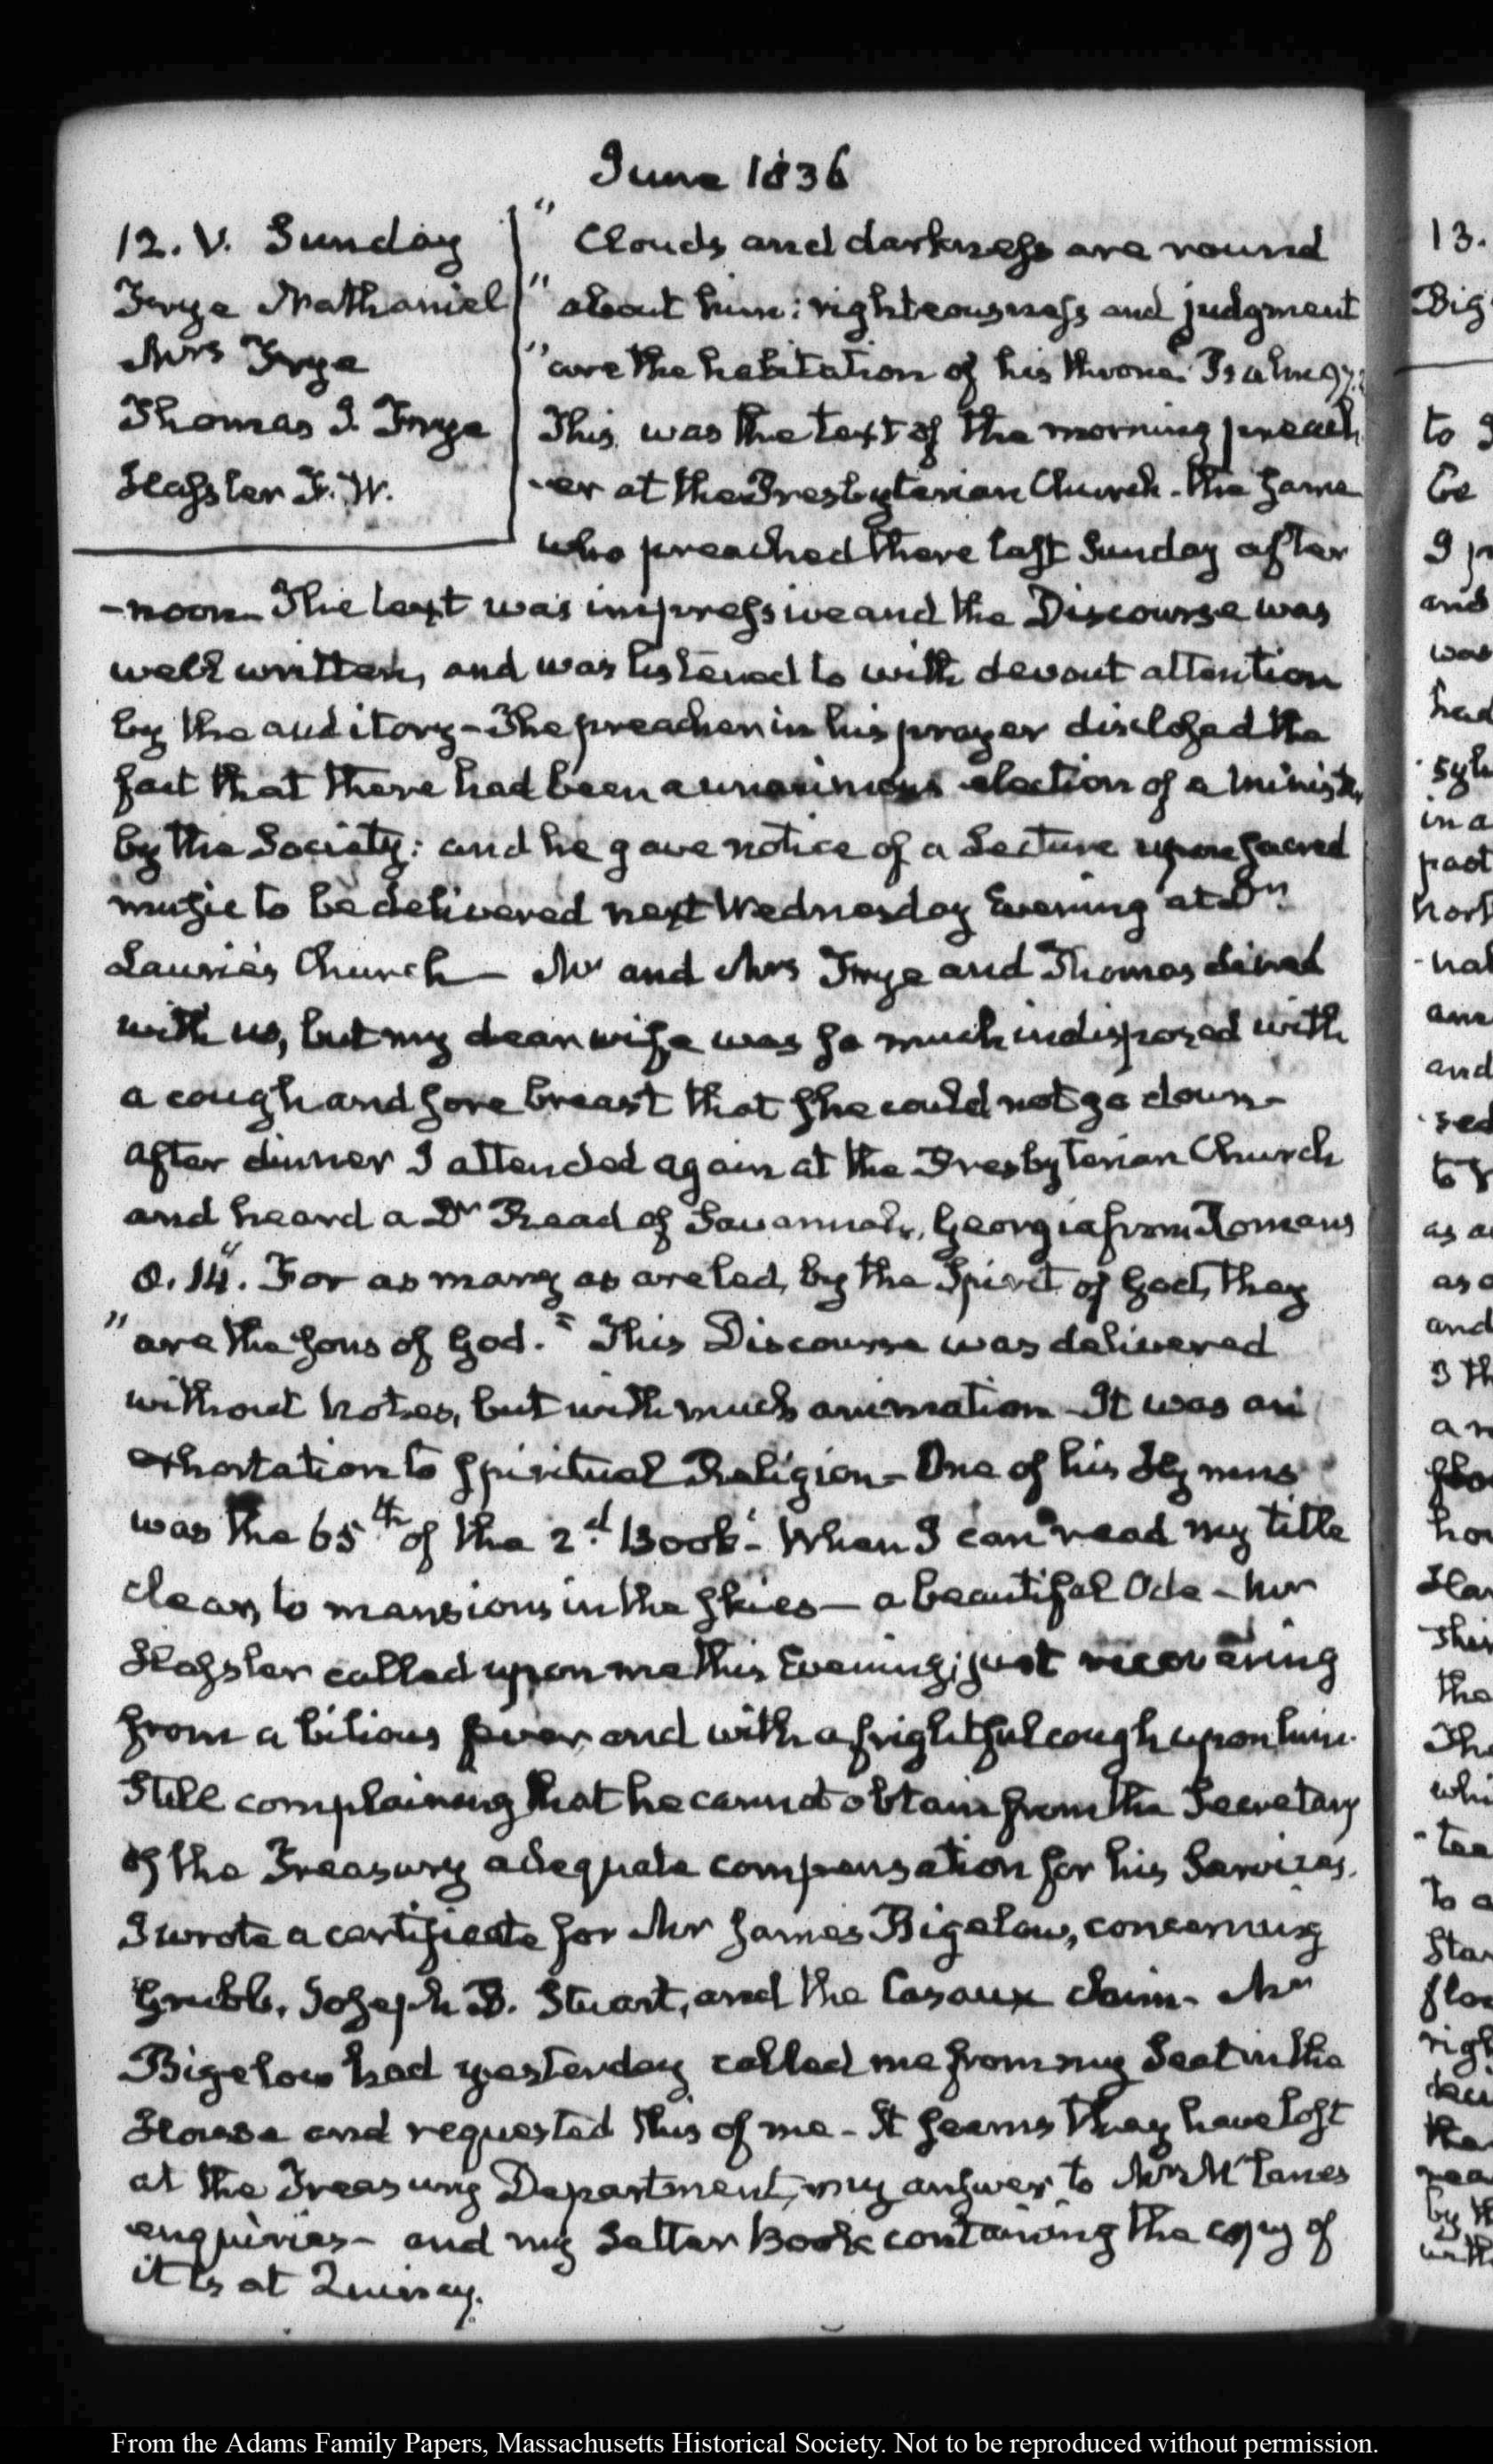 June 1836
12. V. Sunday
Frye Nathaniel
Mrs Frye
Thomas J. Frye
Hassler F. W.
" Clouds and darkness are round
" about him: righteousness and judgment
" are the habitation of his throne" Psalm 97.2
This was the text of the morning preach
-er at the Presbyterian Church - the same
who preached there last Sunday after
-noon - The text was impressive and the Discourse was
well written, and was listened to with devout attention
by the auditory - The preacher in his prayer disclosed the
fact that there had been a unanimous election of a Minister
by the Society: and he gave notice of a Lecture upon sacred
music to be delivered next Wednesday Evening at Dr.
Laurie's Church — Mr and Mrs Frye and Thomas dined
with us, but my dear wife was so much indisposed with
a cough and sore breast that she could not go down -
After dinner I attended again at the Presbyterian Church
and heard a Dr Read of Savannah, Georgia from Romans
8. 14. " For as many as are led by the Spirit of God, they
" are the sons of God. " This Discourse was delivered
without notes, but with much animation - It was an
exhortation to spiritual Religion - One of his Hymns
was the 65th of the 2d Book - When I can read my title
clear, to mansions in the skies — a beautiful Ode - Mr
Hassler called upon me this Evening; just recovering
from a bilious fever and with a frightful cough upon him.
Still complaining that he cannot obtain from the Secretary
of the Treasury adequate compensation for his Services.
I wrote a certificate for Mr James Bigelow, concerning
Joseph B. Stuart, and the Cazaux claim - Mr
Bigelow had yesterday called me from my Seat in the
House and requested this of me - It seems they have lost
at the Treasury Department, my answer to Mr McLane's
enquiries - and my Letter Book containing the copy of
it is at Quincy.
13.
Big
to
be
and
was
had
in a
past
nort
-nal
and
as
as
and
ho
This
the
The
whi
-tee
to a
Sta
flo
righ
the
by th
with
From the Adams Family Papers, Massachusetts Historical Society. Not to be reproduced without permission.